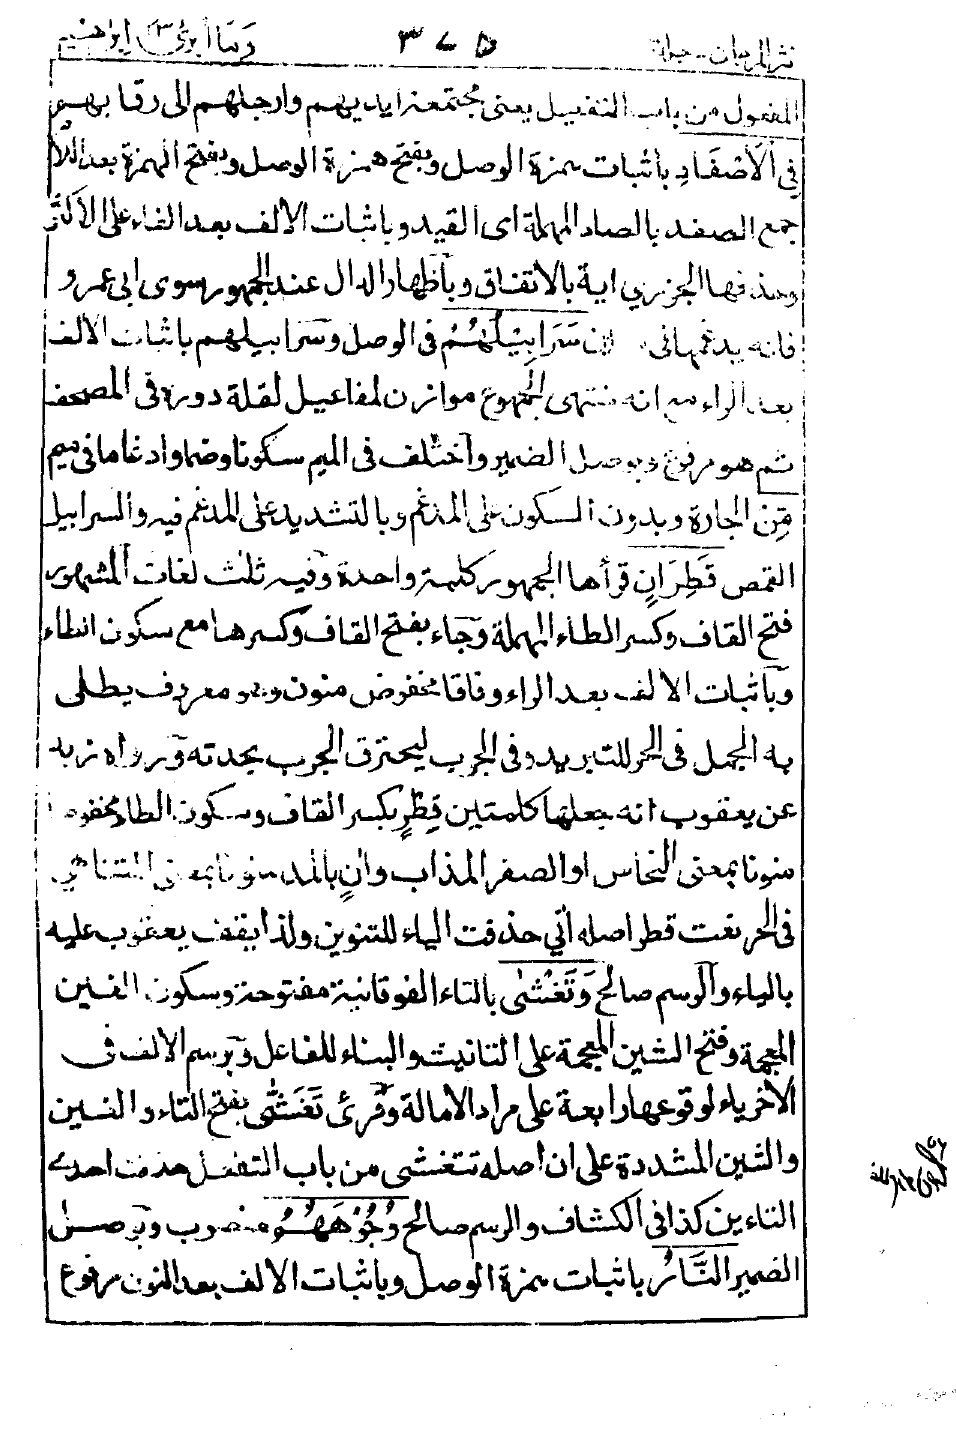 نثر المرجان - جلد ٣ ٣٧٥ وما أبرئ ١٣ ابراهيم
المفعول من باب التفعيل يعنى مجتمعة ايديهم وارجلهم الى رقابهم
فى الْاَصْفَادِ باثبات همزة الوصل وبفتح همزة الوصل وبفتح الهمزة بعد اللام
جمع الصفد بالصاد المهملة اى القيد وباثبات الالف بعد الفاء على الاكثر
وحذفها الجزرى اية بالاتفاق وبآظهار الدال عند الجمهور سوى ابى عمرو
فانه يدغمها فى سَرَابِيْلُهُمْ فى الوصل وسرابيلهم باثبات الالف
بعد الراء مع انه منتهى الجموع موازن لمفاعيل لقلة دوره فى المصحف
ثم هو مرفوع وبوصل الضمير وآختلف فى الميم سكونا وضما وادغاما فى ميم
مِّنْ الجارة وبدون السكون على المدغم وبالتشديد على المدغم فيه والسرابيل
القمص قَطِرَانٍ قرأها الجمهور كلمة واحدة وفيه ثلث لغات المشهور
فتح القاف وكسر الطاء المهملة وجاء بفتح القاف وكسرها مع سكون الطاء
وبآثبات الالف بعد الراء وفاقا مخفوض منون وهو معروف يطلى
به الجمل فى الحر للتبريد وفى الجرب ليحترق الجرب بحدته وروآه زيد
عن يعقوب انه جعلها كلمتين قِطْرٍ بكسر القاف وسكون الطاء مخفوضا
منونا بمعنى النحاس او الصفر المذاب واٰنٍ بالمد منونا بمعنى المتناهى
فى الحر نعت قطر اصله آنى حذفت الياء للتنوين ولذا يقف يعقوب عليه
بالياء والرسم صالح وَتَغْشٰى بالتاء الفوقانية مفتوحة وسكون الغين
المعجمة وفتح الشين المعجمة على التانيث والبناء للفاعل وبرسم الالف فى
الآخر ياء لوقوعها رابعة على مراد الامالة وقرئ تَغَشّٰى بفتح التاء والغين
والشين المشددة على ان اصله تتغشى من باب التفعل حذفت احدى
التاءين كذا فى الكشاف والرسم صالح وُجُوْهَهُمُ منصوب وبوصل
الضمير النَّارُ باثبات همزة الوصل وباثبات الالف بعد النون مرفوع